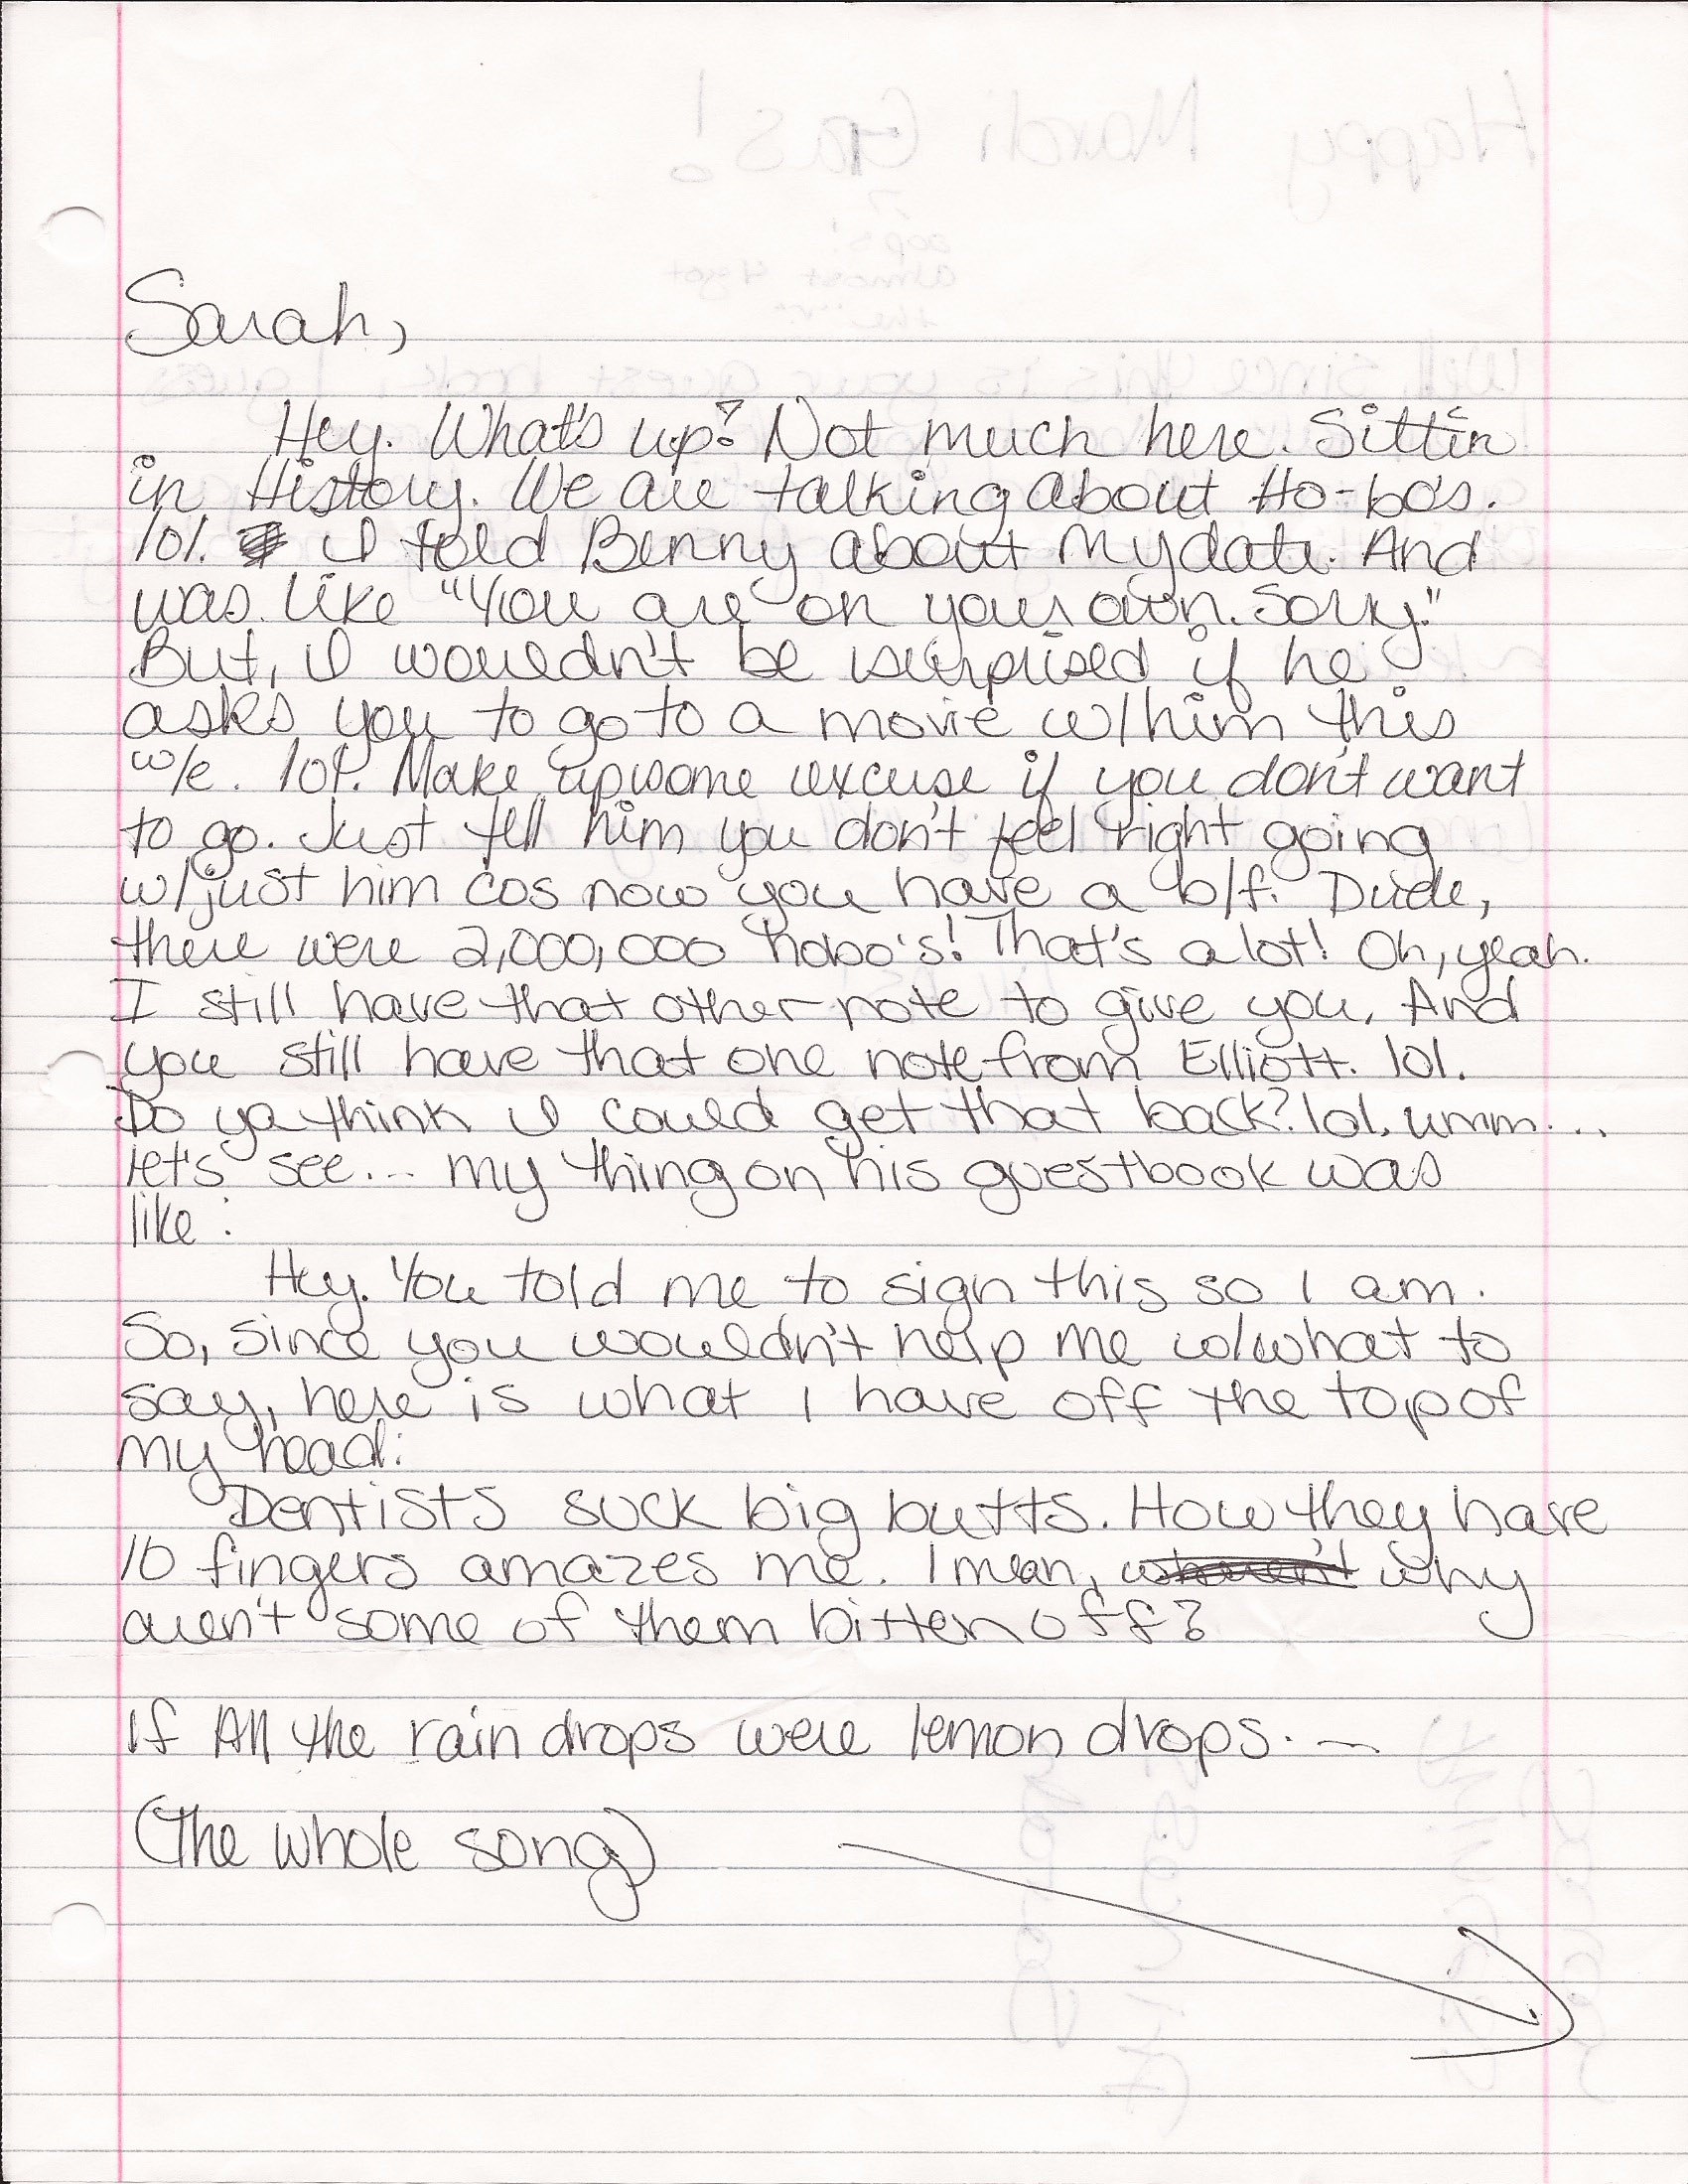 Happy Mardi Gras!
oops!
almost 4got
the
Sarah,
Hey. What's up? Not much here. Sittin
in History. We are talking about Ho-bo's.
lol. I told Benny about my date. And
was like "You are on your own. Sorry."
But, I wouldn't be surprised if he
asks you to go to a movie w/him this
w/e. lol. Make up some excuse if you don't want
to go. Just tell him you don't feel right going
w/just him cos now you have a b/f. Dude,
there were 2,000,000 hobo's! That's a lot! Oh, yeah.
I still have that other note to give you. And
you still have that one note from Elliott. lol.
Do ya think I could get that back? lol. umm...
let's see... my thing on his guestbook was
like:
Hey. You told me to sign this so I am.
So, since you wouldn't help me w/what to
say, here is what I have off the top of
my head:
Dentists suck big butts. How they have
10 fingers amazes me. I mean, why
aren't some of them bitten off?
If All the rain drops were lemon drops...
(The whole song)